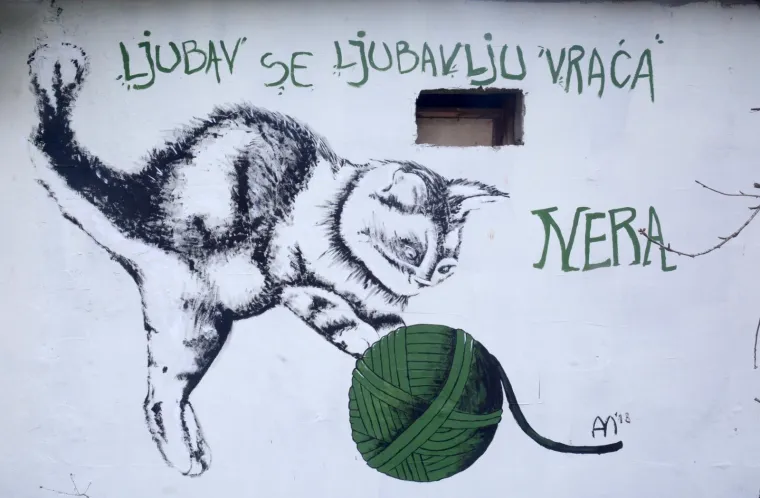 LJUBAV SE LJUBAVLJU "VRAĆA"
NERA
AN '18